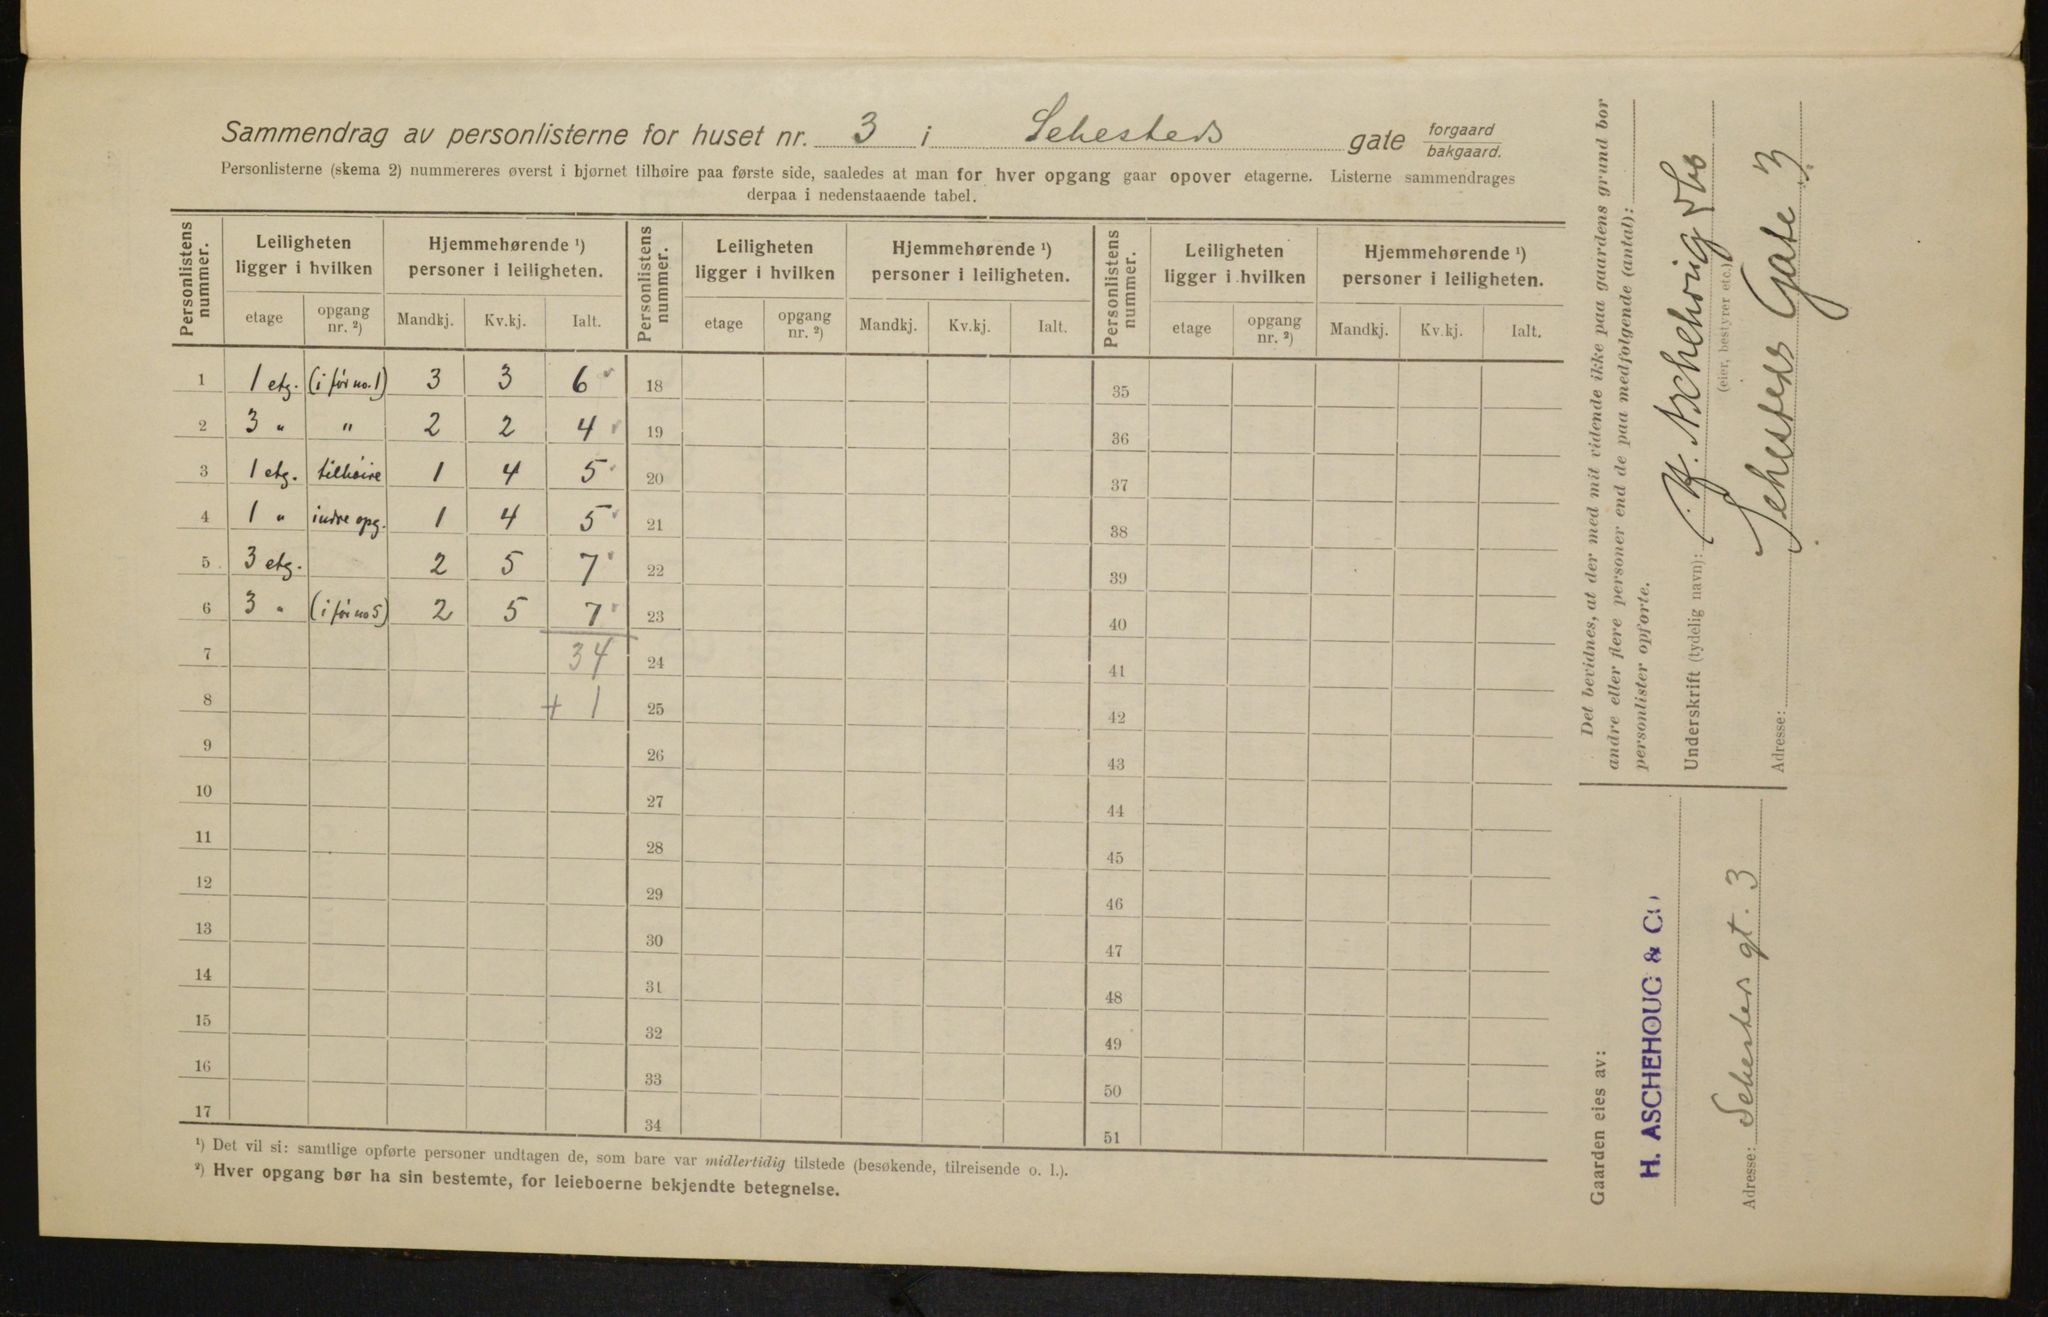 Sammendrag av personlisterne for huset nr. 3 i Sehesteds gate forgaard bakgaard.
Personlisterne (skema 2) nummereres øverst i hjørnet tilhøire paa første side, saaledes at man for hver opgang gaar opover etagerne. Listerne sammendrages
derpaa i nedenstaaende tabel.
Personlistens nummer. Leiligheten ligger i hvilken Hjemmehørende ¹) personer i leiligheten. Personlistens nummer. Leiligheten ligger i hvilken Hjemmehørende ¹) personer i leiligheten. Personlistens nummer. Leiligheten ligger i hvilken Hjemmehørende ¹) personer i leiligheten.
etage opgang nr. ²) Mandkj. Kv.kj. Ialt. etage opgang nr. ²) Mandkj. Kv.kj. Ialt. etage opgang nr. ²) Mandkj. Kv.kj. Ialt.
1 1 etg. (i før no. 1) 3 3 6 18 35
2 3 " " 2 2 4 19 36
3 1 etg. tilhøire 1 4 5 20 37
4 1 " indre opg. 1 4 5 21 38
5 3 etg. 2 5 7 22 39
6 3 " (i før no 5) 2 5 7 23 40
7 34 24 41
8 + 1 25 42
9 26 43
10 27 44
11 28 45
12 29 46
13 30 47
14 31 48
15 32 49
16 33 50
17 34 51
¹) Det vil si: samtlige opførte personer undtagen de, som bare var midlertidig tilstede (besøkende, tilreisende o. l.).
²) Hver opgang bør ha sin bestemte, for leieboerne bekjendte betegnelse.
Det bevidnes, at der med mit vidende ikke paa gaardens grund bor
andre eller flere personer end de paa medfølgende (antal):
personlister opførte.
Underskrift (tydelig navn): H. Aschehoug & Co
(eier, bestyrer etc.)
Adresse: Sehesteds Gate 3
Gaarden eies av:
H. ASCHEHOUG & CO
Adresse: Sehesteds gt. 3